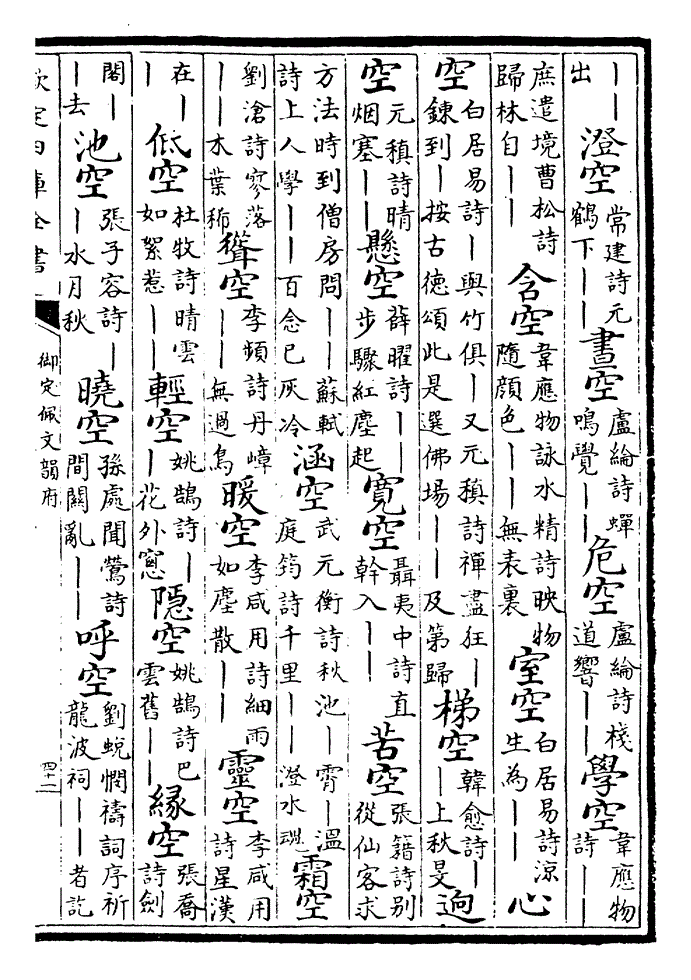 ——出澄空常建詩元鶴下——晝空盧綸詩蟬鳴覺——危空盧綸詩棧道響——學空韋應物詩
庶遣境曹松詩歸林自——含空韋應物詠水精詩映物隨顔色——無表裏室空白居易詩凉生為——心
空白居易詩—與竹俱—又元稹詩禪盡狂—鍊到—按古德頌此是選佛場——及第歸梯空韓愈詩——上秋旻迥
空元稹詩晴烟塞——懸空薛曜詩——步驟紅塵起寛空聶夷中詩直幹入——苦空張籍詩别從仙客求
方法時到僧房問——蘇軾詩上人學——百念已灰冷涵空武元衡詩秋池—霄—溫庭筠詩千里——澄水魂霜空
劉滄詩寥落—木葉稀聳空李頻詩丹嶂—無過鳥暖空李咸用詩細雨如塵散——靈空李咸用詩星漢
在——低空杜牧詩晴雲如絮惹——輕空姚鵠詩——花外窻隱空姚鵠詩巴雲舊——緣空張喬詩劍
閣——去池空張子容詩——水月秋曉空孫處聞鶯詩間關亂——呼空劉蛻憫禱詞序祈龍波祠——者訖
欽定四庫全書
御定佩文韻府
四十二